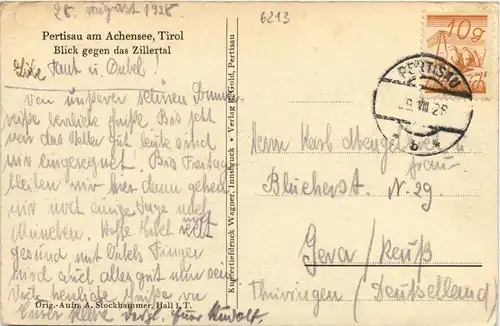 28. August 1928
6213
Pertisau am Achensee, Tirol
Blick gegen das Zillertal
Liebe Tant u. Onkel!
Von unserer schönen
herzliche Grüße. Bis jetzt
war das Wetter gut heute sind
wir eingeregnet. Bis Freitag
bleiben wir hier dann gehen
wir noch einige Tage nach
München. Hoffe Onkel
gesund mit Onkels Finger
wird auch alles gut
Viele herzliche Grüße
Eurer
Orig.-Aufn. A. Stockhammer, Hall i. T.
Kupfertiefdruck Wagner, Innsbruck • Verlag Gold, Pertisau
10g
PERTISAU
VIII 28
b *
Herrn Karl
Frau
Blücherst. N. 29
Gera / Reuß
Thüringen (Deutschland)